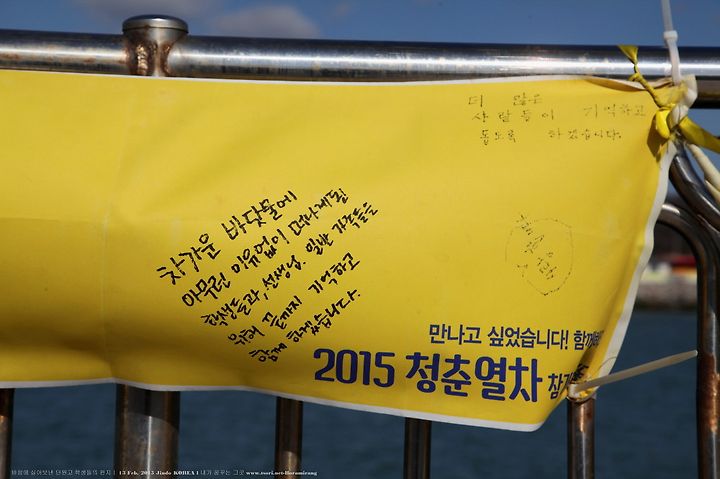 더 많은
사람들이 기억하고
돕도록 하겠습니다.
차가운 바닷물에
아무런 이유없이 떠나게 된
학생들과, 선생님, 일반 가족들을
위해 끝까지 기억하고
함께 하겠습니다.
만나고 싶었습니다! 함께
2015 청춘열차 참가
바람에 실어보낸 단원고 학생들의 편지 | 13 Feb, 2015 Jindo KOREA | 내가 꿈꾸는 그곳 www.tsori.net-Boramirang